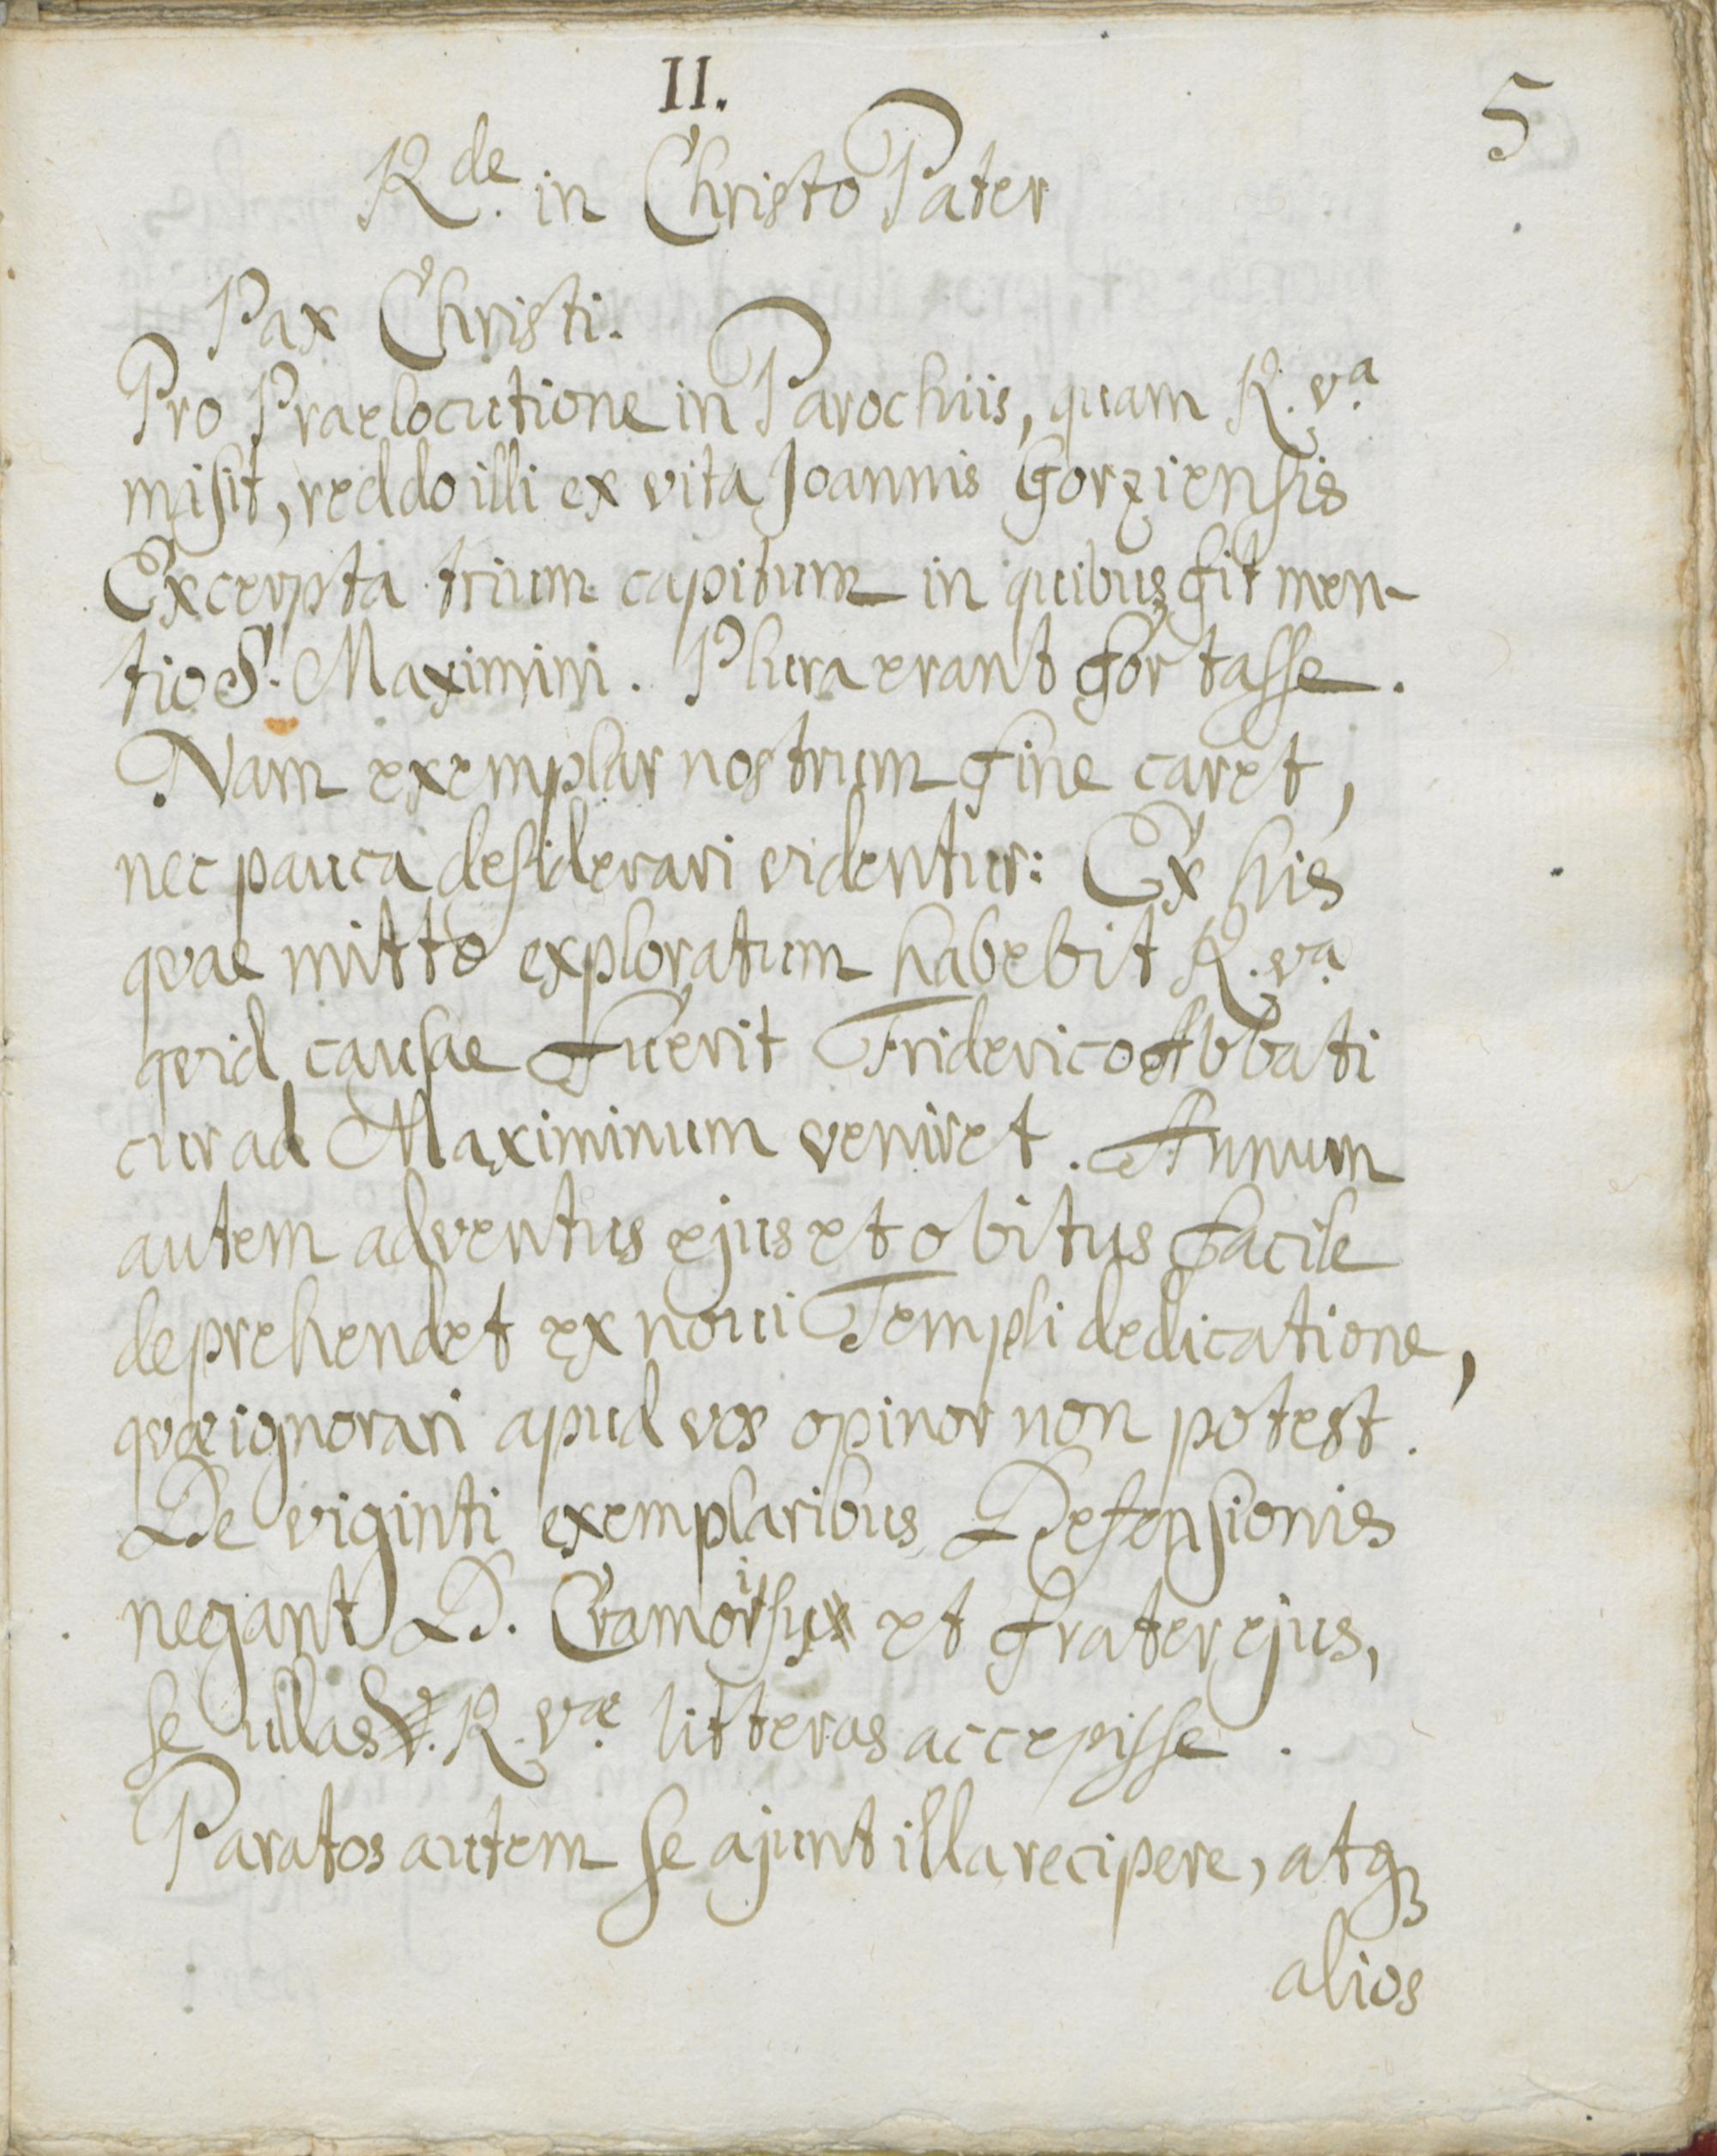 II.
5
R.de in Christo Pater
Pax Christi.
Pro Praelocutione in Parochiis, quam R. v.a
misit, reddo illi ex vita Joannis Gorziensis
Excerpta trium capitum in quibus fit men-
tio S. Maximini. Plura erant fortasse.
Nam exemplar nostrum fine caret,
nec pauca desiderari videntur: Ex his
qvae mitto exploratum habebit R. v.a
qvid causae fuerit Friderico Abbati
cur ad Maximinum veniret. Annum
autem adventus ejus et obitus facile
deprehendet ex noui Templi dedicatione,
qvae ignorari apud vos opinor non potest.
De viginti exemplaribus Defensionis
negant D. Cramoisy et frater ejus,
se ullas R. v.ae litteras accepisse.
Paratos autem se ajunt illa recipere, atq;
alios